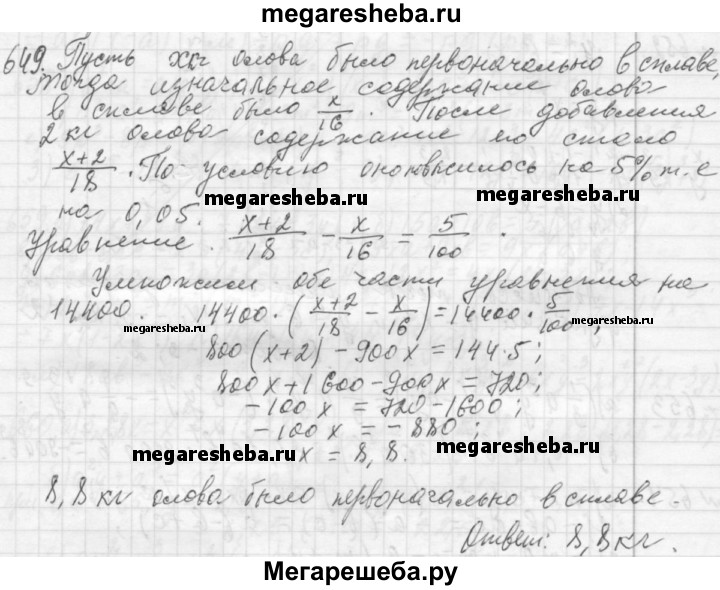 megaresheba.ru
649. Пусть х кг олова было первоначально в сплаве
тогда изначальное содержание олова
в сплаве было x/16. После добавления
2 кг олова содержание его стало
(x+2)/18. По условию оно повысилось на 5% т.е
на 0,05.
megaresheba.ru megaresheba.ru
Уравнение. (x+2)/18 - x/16 = 5/100.
Умножим обе части уравнения на
14400. 14400·((x+2)/18 - x/16) = 14400·5/100;
megaresheba.ru megaresheba.ru
800(x+2) - 900x = 144·5;
800x+1600-900x = 720;
-100x = 720-1600;
-100x = -880;
megaresheba.ru megaresheba.ru
x = 8,8.
8,8 кг олова было первоначально в сплаве.
Ответ: 8,8 кг.
Мегарешеба.ру